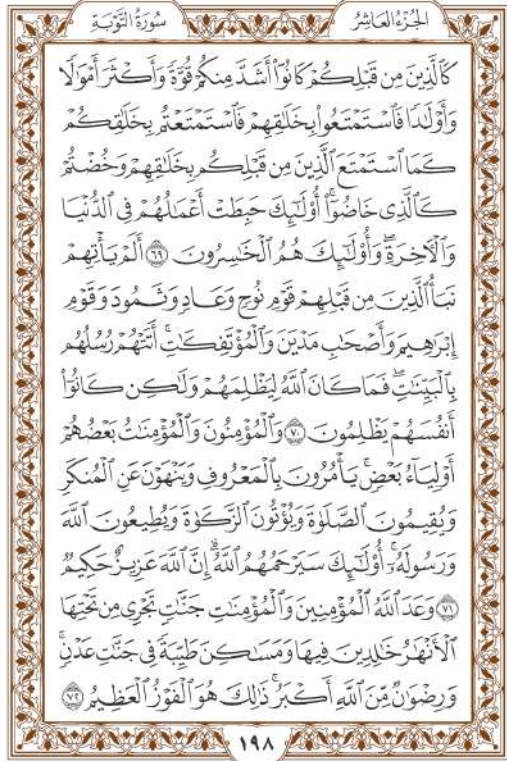 سُورَةُ التَّوْبَةِ
الجُزْءُ العَاشِرُ
كَٱلَّذِينَ مِن قَبْلِكُمْ كَانُوٓا۟ أَشَدَّ مِنكُمْ قُوَّةً وَأَكْثَرَ أَمْوَٰلًا
وَأَوْلَٰدًا فَٱسْتَمْتَعُوا۟ بِخَلَٰقِهِمْ فَٱسْتَمْتَعْتُم بِخَلَٰقِكُمْ
كَمَا ٱسْتَمْتَعَ ٱلَّذِينَ مِن قَبْلِكُم بِخَلَٰقِهِمْ وَخُضْتُمْ
كَٱلَّذِى خَاضُوٓا۟ ۚ أُو۟لَٰٓئِكَ حَبِطَتْ أَعْمَٰلُهُمْ فِى ٱلدُّنْيَا
وَٱلْءَاخِرَةِ ۖ وَأُو۟لَٰٓئِكَ هُمُ ٱلْخَٰسِرُونَ ٦٩ أَلَمْ يَأْتِهِمْ
نَبَأُ ٱلَّذِينَ مِن قَبْلِهِمْ قَوْمِ نُوحٍ وَعَادٍ وَثَمُودَ وَقَوْمِ
إِبْرَٰهِيمَ وَأَصْحَٰبِ مَدْيَنَ وَٱلْمُؤْتَفِكَٰتِ ۚ أَتَتْهُمْ رُسُلُهُم
بِٱلْبَيِّنَٰتِ ۖ فَمَا كَانَ ٱللَّهُ لِيَظْلِمَهُمْ وَلَٰكِن كَانُوٓا۟
أَنفُسَهُمْ يَظْلِمُونَ ٧٠ وَٱلْمُؤْمِنُونَ وَٱلْمُؤْمِنَٰتُ بَعْضُهُمْ
أَوْلِيَآءُ بَعْضٍ ۚ يَأْمُرُونَ بِٱلْمَعْرُوفِ وَيَنْهَوْنَ عَنِ ٱلْمُنكَرِ
وَيُقِيمُونَ ٱلصَّلَوٰةَ وَيُؤْتُونَ ٱلزَّكَوٰةَ وَيُطِيعُونَ ٱللَّهَ
وَرَسُولَهُۥٓ ۚ أُو۟لَٰٓئِكَ سَيَرْحَمُهُمُ ٱللَّهُ ۗ إِنَّ ٱللَّهَ عَزِيزٌ حَكِيمٌ
٧١ وَعَدَ ٱللَّهُ ٱلْمُؤْمِنِينَ وَٱلْمُؤْمِنَٰتِ جَنَّٰتٍ تَجْرِى مِن تَحْتِهَا
ٱلْأَنْهَٰرُ خَٰلِدِينَ فِيهَا وَمَسَٰكِنَ طَيِّبَةً فِى جَنَّٰتِ عَدْنٍ ۚ
وَرِضْوَٰنٌ مِّنَ ٱللَّهِ أَكْبَرُ ۚ ذَٰلِكَ هُوَ ٱلْفَوْزُ ٱلْعَظِيمُ ٧٢
١٩٨